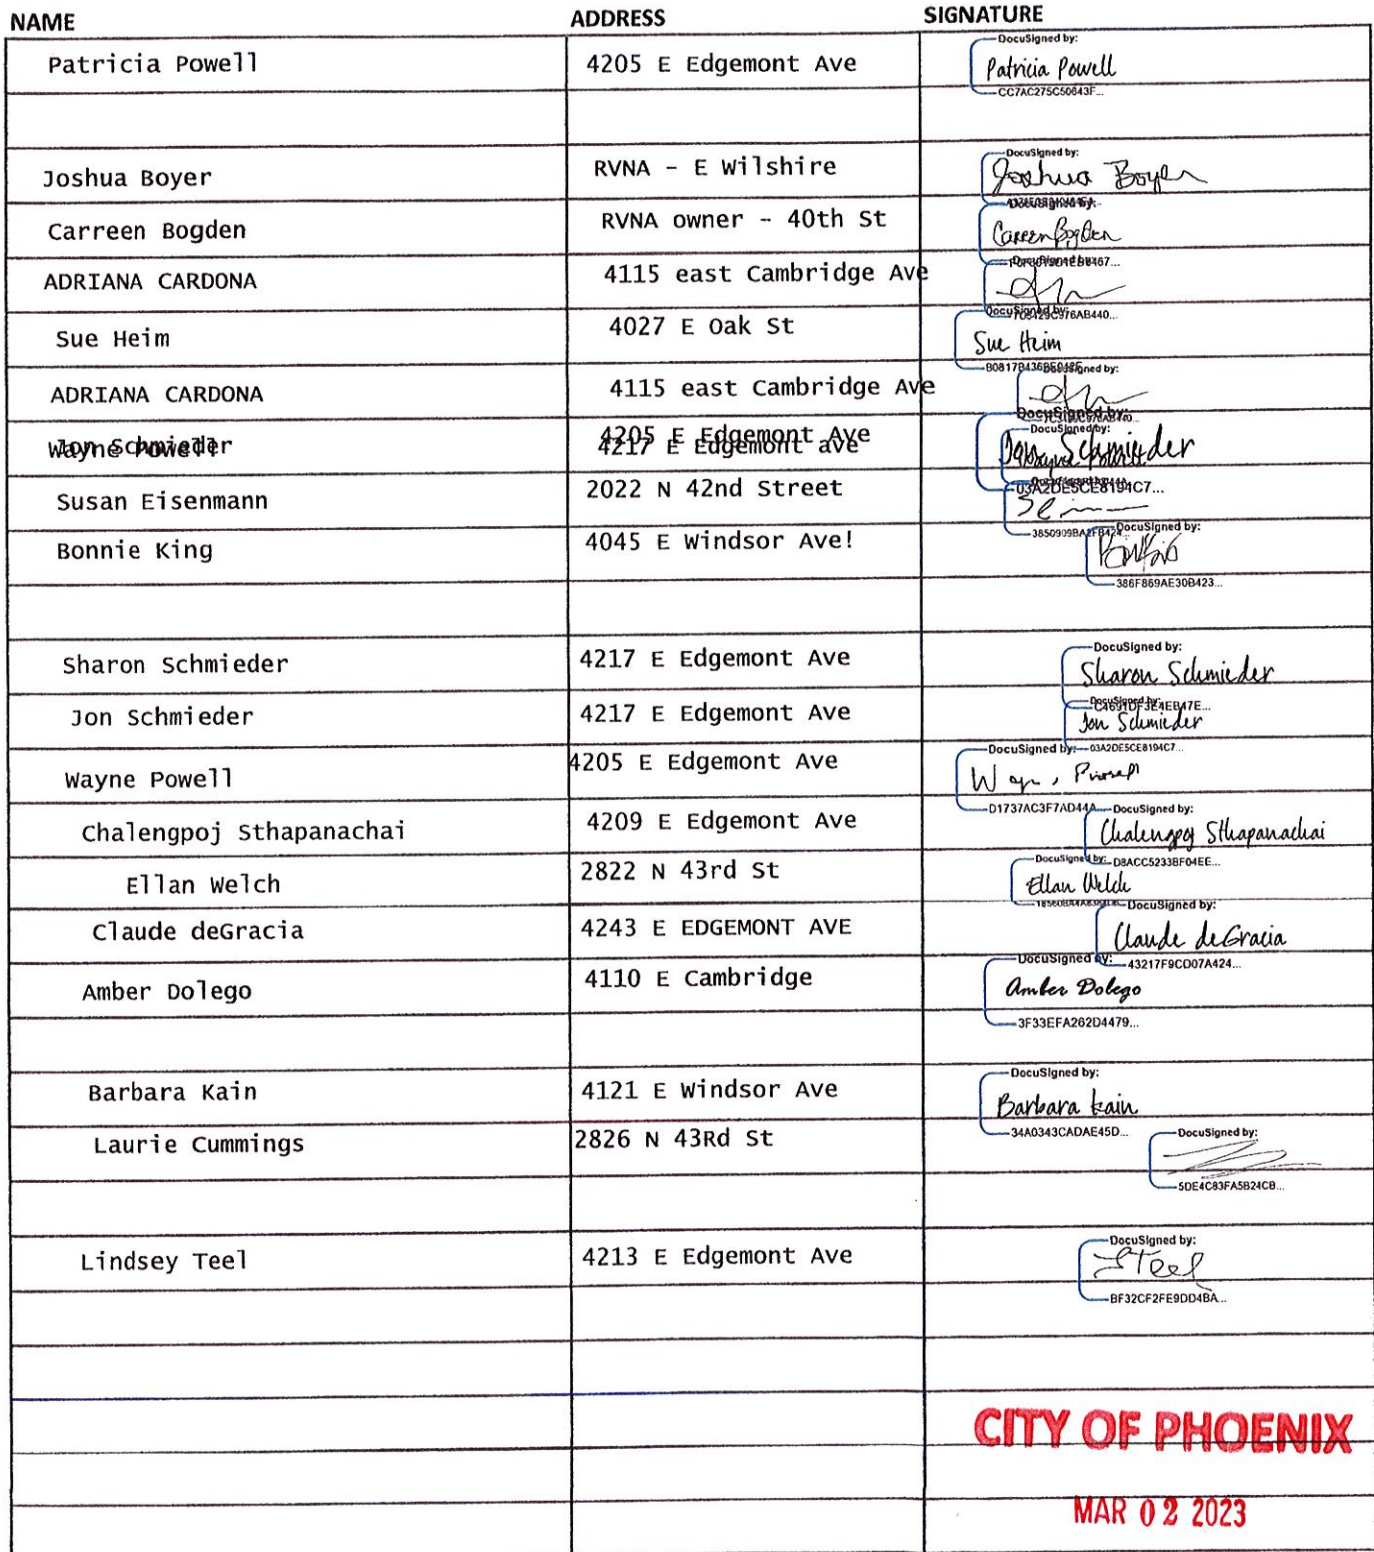 NAME ADDRESS SIGNATURE
Patricia Powell 4205 E Edgemont Ave DocuSigned by:
Patricia Powell
CC7AC275C50643F...
Joshua Boyer RVNA - E Wilshire DocuSigned by:
Joshua Boyer
Carreen Bogden RVNA owner - 40th St
Carreen Bogden
ADRIANA CARDONA 4115 east Cambridge Ave
Sue Heim 4027 E Oak St DocuSigned by:
Sue Heim
ADRIANA CARDONA 4115 east Cambridge Ave DocuSigned by:
Jon Schmieder 4205 E Edgemont Ave DocuSigned by:
Wayne Powell 4217 E Edgemont ave DocuSigned by:
Jon Schmieder
Wayne Powell
03A2DE5CE8194C7...
Susan Eisenmann 2022 N 42nd Street
Bonnie King 4045 E Windsor Ave! DocuSigned by:
386F869AE30B423...
Sharon Schmieder 4217 E Edgemont Ave DocuSigned by:
Sharon Schmieder
Jon Schmieder 4217 E Edgemont Ave DocuSigned by:
C4691DF3E4EB47E...
Jon Schmieder
03A2DE5CE8194C7...
Wayne Powell 4205 E Edgemont Ave DocuSigned by:
D1737AC3F7AD44A...
Chalengpoj Sthapanachai 4209 E Edgemont Ave DocuSigned by:
Chalengpoj Sthapanachai
D8ACC5233BF04EE...
Ellan Welch 2822 N 43rd St DocuSigned by:
Ellan Welch
Claude deGracia 4243 E EDGEMONT AVE DocuSigned by:
Claude deGracia
43217F9CD07A424...
Amber Dolego 4110 E Cambridge DocuSigned by:
Amber Dolego
3F33EFA262D4479...
Barbara Kain 4121 E Windsor Ave DocuSigned by:
Barbara Kain
34A0343CADAE45D...
Laurie Cummings 2826 N 43Rd St DocuSigned by:
5DE4C83FA5B24CB...
Lindsey Teel 4213 E Edgemont Ave DocuSigned by:
LTeel
BF32CF2FE9DD4BA...
CITY OF PHOENIX
MAR 02 2023